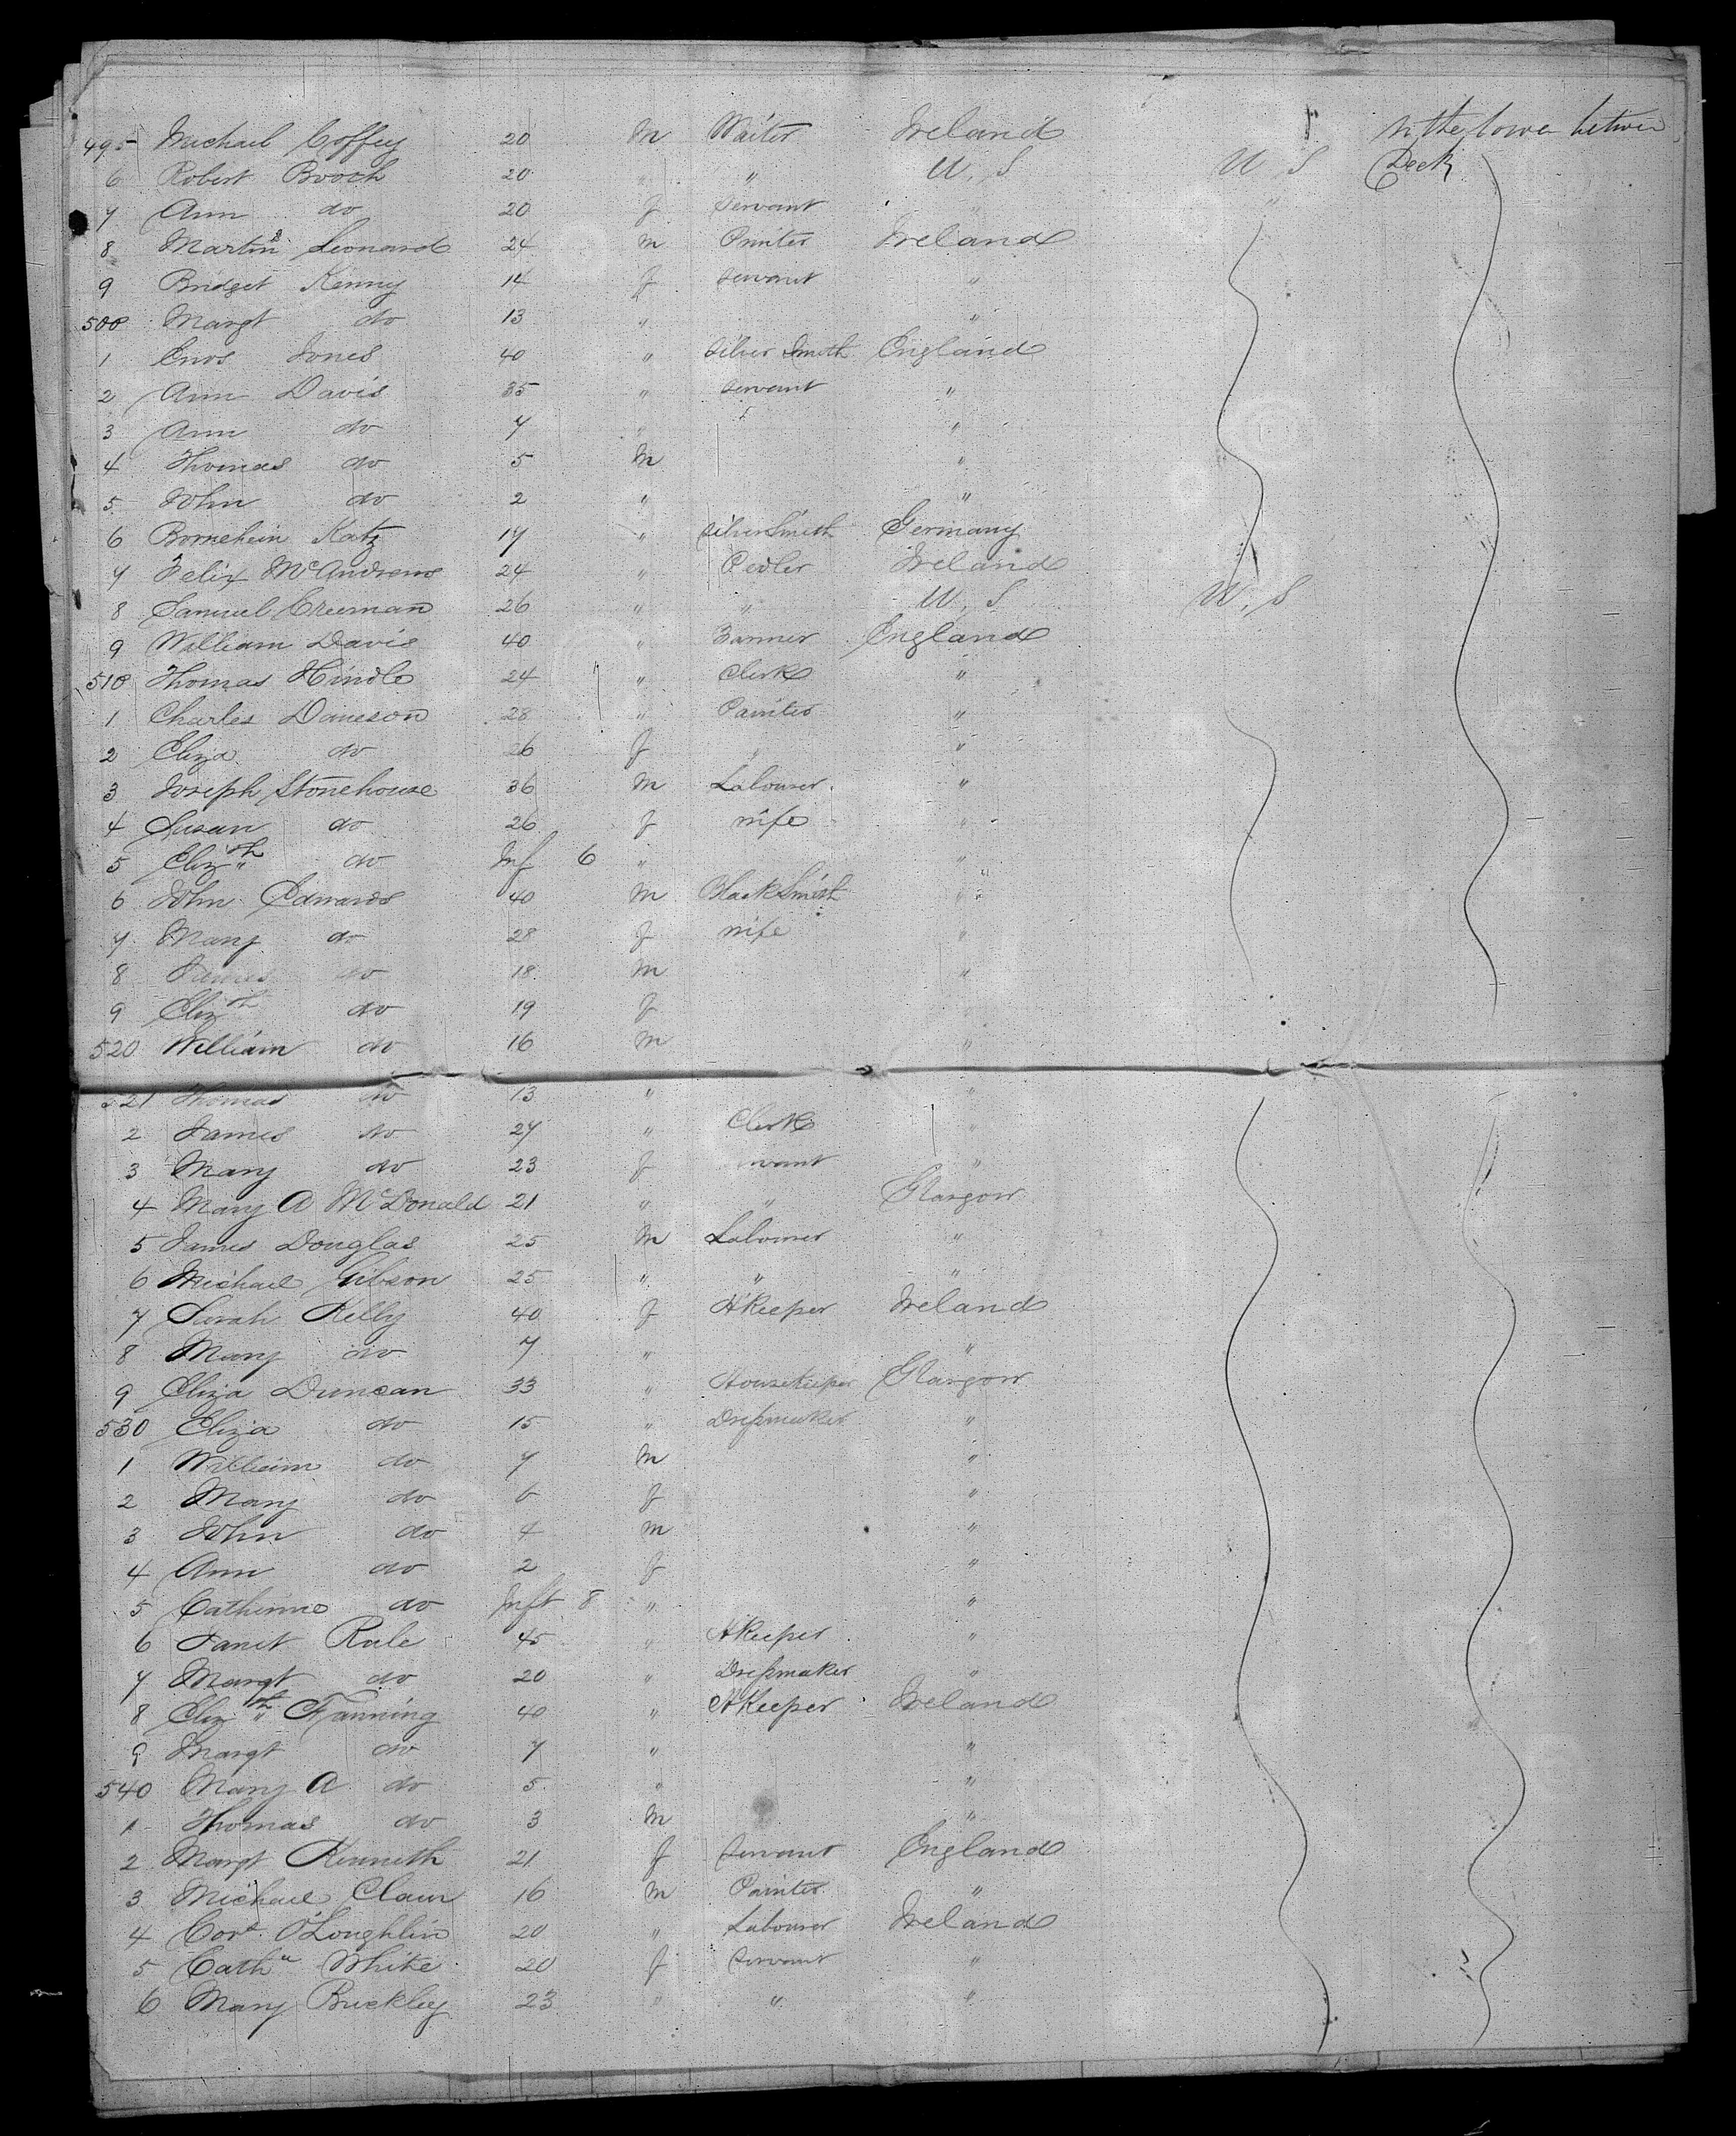 495 Michael Coffey 20 M Waiter Ireland In the lower between
6 Robert Brooch 20 " " U, S U S Deck
7 Ann do 20 f Servant " "
8 Martin Leonard 24 m Painter Ireland
9 Bridget Kenny 14 f Servant "
500 Margt do 13 " "
1 Enos Jones 40 " Silver Smith England
2 Ann Davis 35 " Servant "
3 Ann do 7 " "
4 Thomas do 5 M "
5 John do 2 " "
6 Katz 17 " SilverSmith Germany
7 Felix McAndrews 24 " Pedler Ireland
8 Samuel Creeman 26 " " U, S U, S
9 William Davis 40 " Farmer England
510 Thomas Hindle 24 " Clerk "
1 Charles Dameson 28 " Painter "
2 Eliza do 26 f " "
3 Joseph Stonehouse 36 M Labourer "
4 Susan do 26 f wife "
5 Elizth do Inf 6 " "
6 John Edwards 40 M BlackSmith "
7 Mary do 28 f wife "
8 James do 18 M "
9 Elizth do 19 f "
520 William do 16 M "
521 Thomas do 13 " "
2 James do 27 " Clerk "
3 Mary do 23 f "
4 Mary A McDonald 21 " " Glasgow
5 James Douglas 25 M Labourer "
6 Michael Gibson 25 " " "
7 Sarah Kelly 40 f HKeeper Ireland
8 Mary do 7 " "
9 Eliza Duncan 33 " Housekeeper Glasgow
530 Eliza do 15 " Dressmaker "
1 William do 7 M "
2 Mary do 6 f "
3 John do 4 m "
4 Ann do 2 f "
5 Catherine do Inft 8 " "
6 Janet Rale 45 " HKeeper "
7 Margt do 20 " Dressmaker "
8 Elizth Fanning 40 " HKeeper Ireland
9 Margt do 7 " "
540 Mary A do 5 " "
1 Thomas do 3 M "
2 Margt Kenneth 21 f Servant England
3 Michael Claur 16 M Painter "
4 O'Loughlin 20 " Labourer Ireland
5 Cathn White 20 f Servant "
6 Mary Buckley 23 " " "